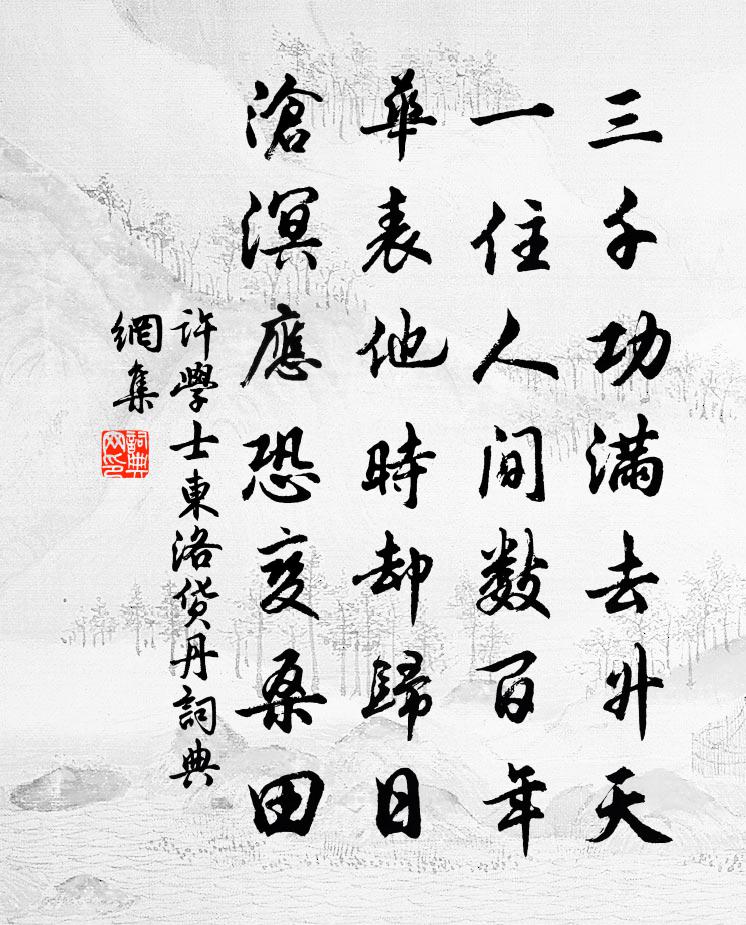 三千功滿去升天
一住人間數百年
華表他時却歸日
滄溟應恐變桑田
許學士東洛货丹詞典
網集
詞典
网印